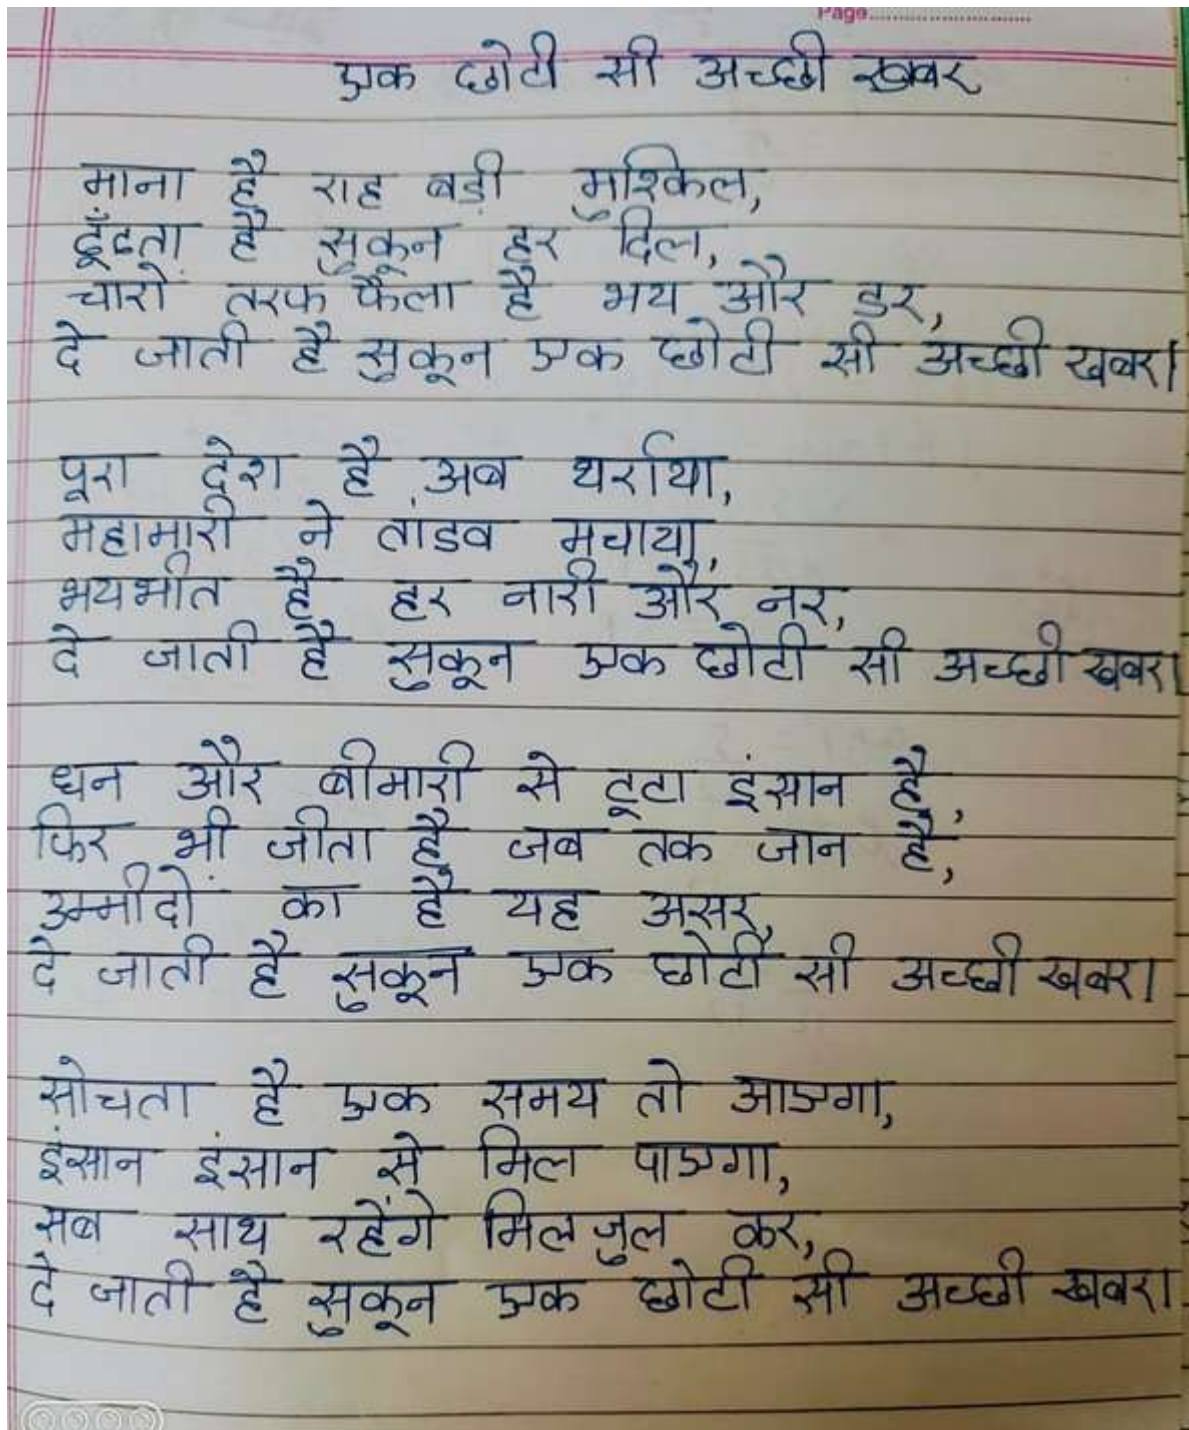 Page
एक छोटी सी अच्छी खबर
माना है राह बड़ी मुश्किल,
ढूँढता है सुकून हर दिल,
चारों तरफ फैला है भय और डर,
दे जाती है सुकून एक छोटी सी अच्छी खबर।
पूरा देश है अब थर्राया,
महामारी ने तांडव मचाया,
भयभीत है हर नारी और नर,
दे जाती है सुकून एक छोटी सी अच्छी खबर।
धन और बीमारी से टूटा इंसान है,
फिर भी जीता है जब तक जान है,
उम्मीदों का है यह असर,
दे जाती है सुकून एक छोटी सी अच्छी खबर।
सोचता है एक समय तो आएगा,
इंसान इंसान से मिल पाएगा,
सब साथ रहेंगे मिलजुल कर,
दे जाती है सुकून एक छोटी सी अच्छी खबर।